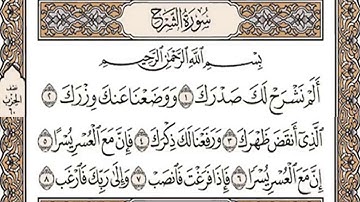 سُورَةُ الشَّرْحِ
بِسْمِ اللَّهِ الرَّحْمَٰنِ الرَّحِيمِ
أَلَمْ نَشْرَحْ لَكَ صَدْرَكَ ١ وَوَضَعْنَا عَنكَ وِزْرَكَ ٢
الَّذِي أَنقَضَ ظَهْرَكَ ٣ وَرَفَعْنَا لَكَ ذِكْرَكَ ٤ فَإِنَّ مَعَ الْعُسْرِ يُسْرًا ٥
إِنَّ مَعَ الْعُسْرِ يُسْرًا ٦ فَإِذَا فَرَغْتَ فَانصَبْ ٧ وَإِلَىٰ رَبِّكَ فَارْغَب ٨
نصف
الحزب
٦٠